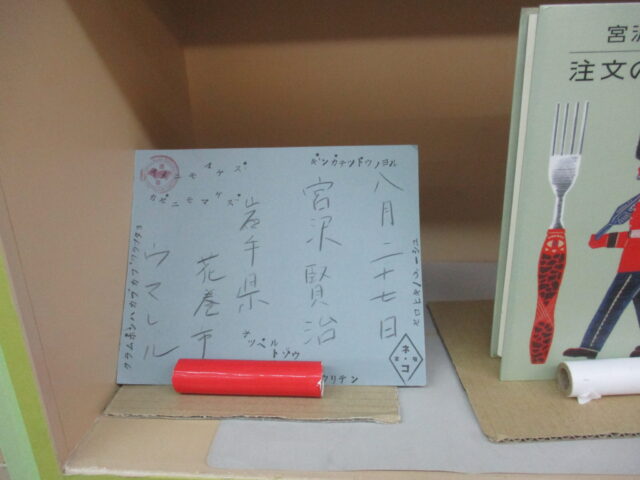 ギンガテツドウノヨル
八月二十七日
宮沢賢治
岩手県
花巻市
ウマレル
ニモマケズ
カゼニモマケズ
クラムボンハカプカプワラツタヨ
セロヒキノゴーシュ
ツペル
トゾウ
ネコ
クリテン
宮沢
注文の